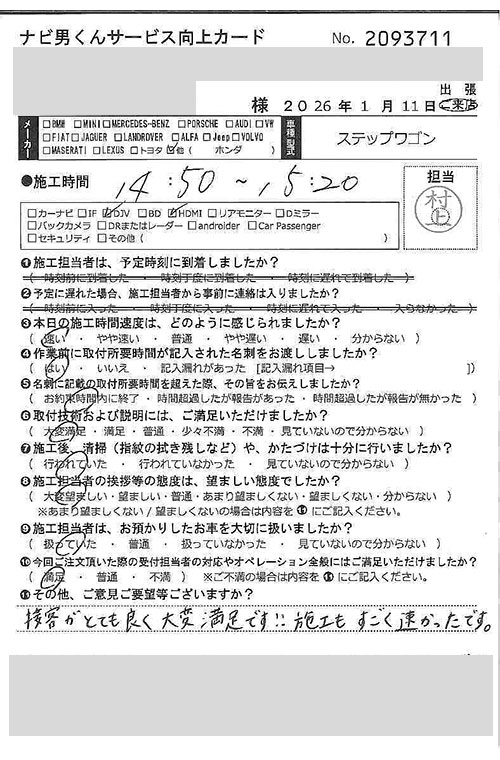 ナビ男くんサービス向上カード No. 2093711
様 2026年1月11日 出張 ご来店
メーカー □BMW □MINI □MERCEDES-BENZ □PORSCHE □AUDI □VW
□FIAT □JAGUER □LANDROVER □ALFA □Jeep □VOLVO
□MASERATI □LEXUS □トヨタ ☑他( ホンダ )
車種/型式 ステップワゴン
●施工時間 14:50 ~ 15:20
担当 村上
□カーナビ □IF ☑DJV □BD ☑HDMI □リアモニター □Dミラー
□バックカメラ □DRまたはレーダー □androider □Car Passenger
□セキュリティ □その他( )
❶施工担当者は、予定時刻に到着しましたか?
( 時刻前に到着した ・ 時刻丁度に到着した ・ 時刻に遅れて到着した )
❷予定に遅れた場合、施工担当者から事前に連絡は入りましたか?
( 時刻前に入った ・ 時刻丁度に入った ・ 時刻に遅れて入った ・ 入らなかった )
❸本日の施工時間速度は、どのように感じられましたか?
( 速い ・ やや速い ・ 普通 ・ やや遅い ・ 遅い ・ 分からない )
❹作業前に取付所要時間が記入された名刺をお渡ししましたか?
( はい ・ いいえ ・ 記入漏れがあった [記入漏れ項目→ ])
❺名刺に記載の取付所要時間を超えた際、その旨をお伝えしましたか?
( お約束時間内に終了 ・ 時間超過したが報告があった ・ 時間超過したが報告が無かった )
❻取付技術および説明には、ご満足いただけましたか?
( 大変満足 ・ 満足 ・ 普通 ・ 少々不満 ・ 不満 ・ 見ていないので分からない )
❼施工後、清掃(指紋の拭き残しなど)や、かたづけは十分に行いましたか?
( 行われていた ・ 行われていなかった ・ 見ていないので分からない )
❽施工担当者の挨拶等の態度は、望ましい態度でしたか?
( 大変望ましい ・ 望ましい ・ 普通 ・ あまり望ましくない ・ 望ましくない ・ 分からない )
※あまり望ましくない / 望ましくないの場合は内容を⓫にご記入ください。
❾施工担当者は、お預かりしたお車を大切に扱いましたか?
( 扱っていた ・ 普通 ・ 扱っていなかった ・ 見ていないので分からない )
❿今回ご注文頂いた際の受付担当者の対応やオペレーション全般にはご満足いただけましたか?
( 満足 ・ 普通 ・ 不満 ) ※ご不満の場合は内容を⓫にご記入ください。
⓫その他、ご意見ご要望等ございますか?
接客がとても良く大変満足です!! 施工もすごく速かったです。